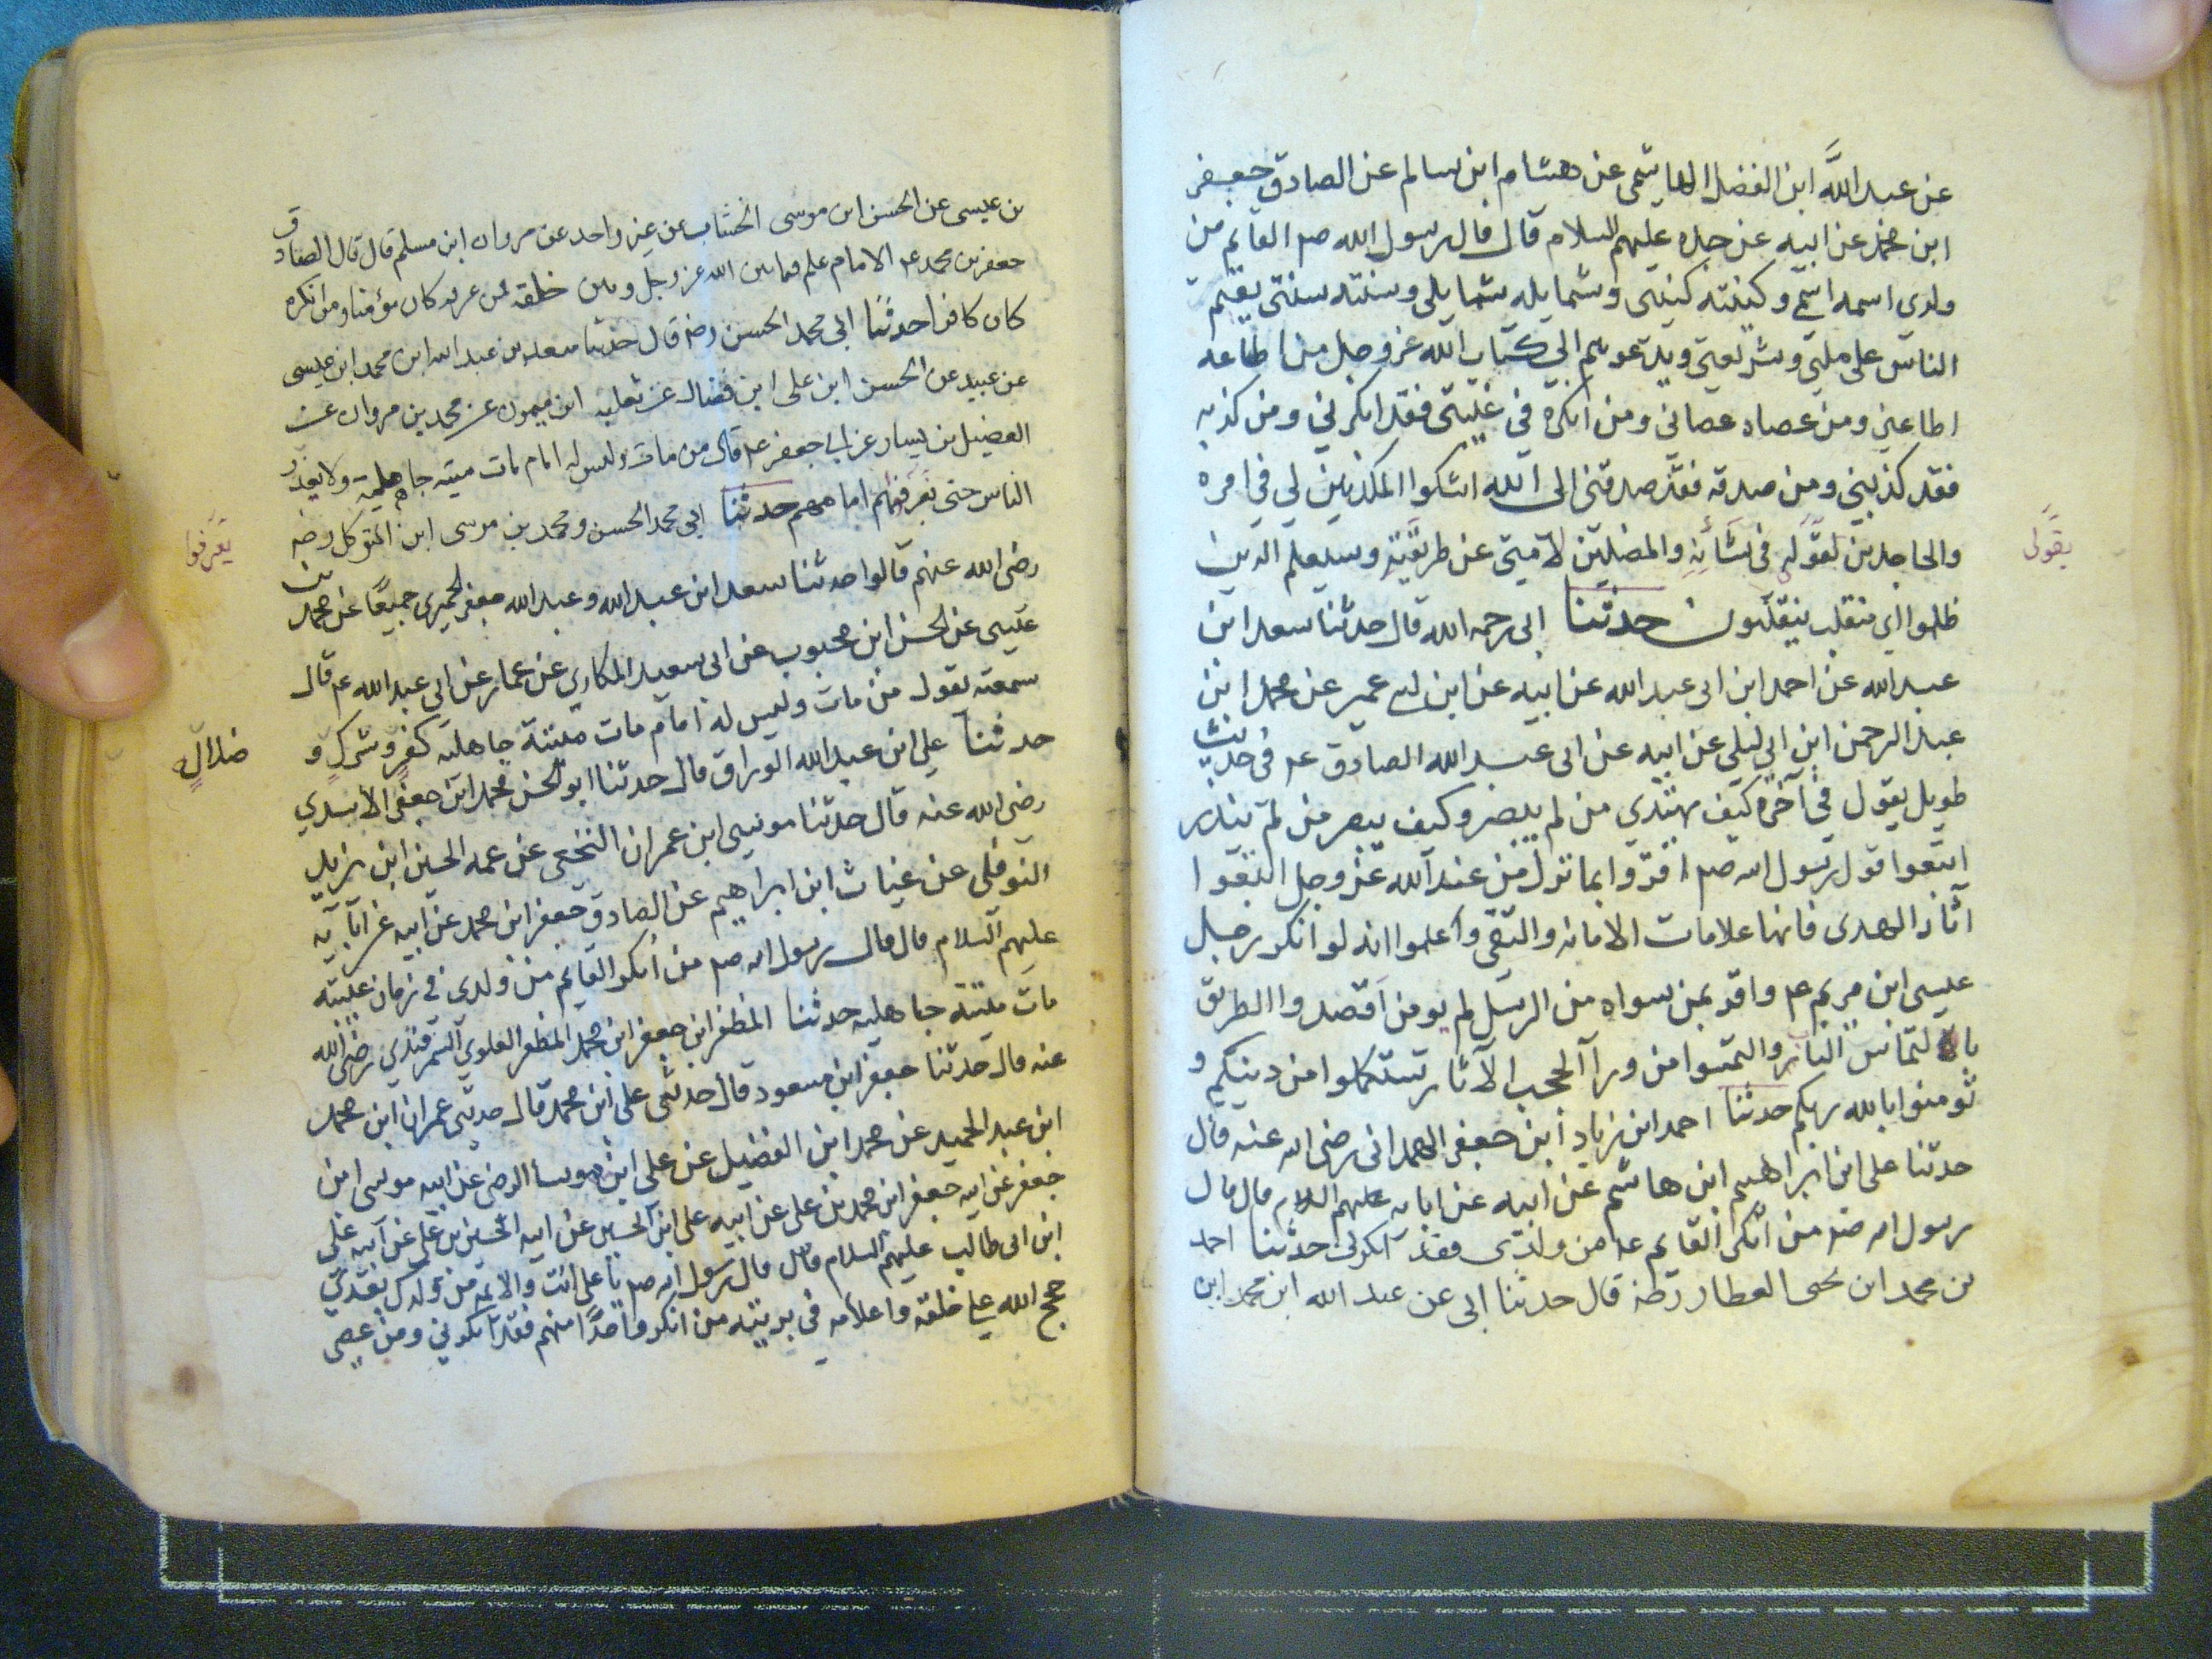 عن عبد الله ابن الفضل الهاشمي عن هشام ابن سالم عن الصادق جعفر
ابن محمد عن ابيه عن جده عليهم السلام قال قال رسول الله صم القايم من
ولدى اسمه اسمي وكنيته كنيتى وشمايله شمايلى وسنته سنتى يقيم
الناس على ملتي وشريعتي ويدعوهم الى كتاب الله عز وجل من اطاعه
اطاعني ومن عصاه عصاني ومن انكره في غيبتى فقد انكرني ومن كذبه
فقد كذبني ومن صدقه فقد صدقني الى الله اشكوا المكذبين لي في امره
والجاحدين لقوله في شأنه والمضلين لامتي عن طريقته وسيعلم الذين
يقولى
ظلموا اي منقلب ينقلبون حدثنا ابى رحمه الله قال حدثنا سعد ابن
عبد الله عن احمد ابن ابى عبد الله عن ابيه عن ابن ابى عمير عن محمد ابن
عبد الرحمن ابن ابي ليلى عن ابيه عن ابى عبد الله الصادق عم فى حديث
طويل يقول في آخره كيف يهتدي من لم يبصر وكيف يبصر من لم ينذر
اتبعوا قول رسول الله صم اقروا بما نزل من عند الله عز وجل اتبعوا
آثار الهدى فانها علامات الامانه والتقى واعلموا انه لو انكر رجل
عيسى ابن مريم عم واقر بمن سواه من الرسل لم يومن اقصدوا الطريق
بالتماس النار والتمسوا من ورآ الحجب الآثار تستكملوا من دينكم و
تومنوا بالله ربكم حدثنا احمد ابن زياد ابن جعفر الهمدانى رضى الله عنه قال
حدثنا على ابن ابراهيم ابن هاشم عن ابيه عن ابايه عليهم السلام قال قال
رسول الله صم من انكر القايم عم من ولدى فقد انكرنى حدثنا احمد
بن محمد ابن يحيى العطار رضه قال حدثنا ابى عن عبد الله ابن محمد ابن
بن عيسى عن الحسن ابن موسى الخشاب عن غير واحد عن مروان ابن مسلم قال قال الصادق
جعفر بن محمد عم الامام علم فيما بين الله عز وجل وبين خلقه لمن عرفه كان مؤمنا ومن انكره
كان كافرا حدثنا ابي محمد الحسن رضه قال حدثنا سعد بن عبد الله ابن محمد ابن عيسى
عن عبيد عن الحسن ابن على ابن فضال عن ثعلبه ابن ميمون عن محمد بن مروان عن
الفضيل بن يسار عن ابي جعفر عم قال من مات وليس له امام مات ميته جاهلية ولا يعذر
الناس حتى يعرفهم امامهم حدثنا ابى محمد الحسن ومحمد بن موسى ابن المتوكل رضه
يعرفوا
رضى الله عنهم قالوا حدثنا سعد ابن عبد الله وعبد الله جعفر الحميرى جميعًا عن محمد بن
عيسى عن الحسن ابن محبوب عن ابى سعيد المكاري عن عمار عن ابى عبد الله عم قال
سمعته يقول من مات وليس له امام مات ميتة جاهلية كفر وشرك و
ضلالٍ
حدثنا علي ابن عبد الله الوراق قال حدثنا ابو الحسن محمد ابن جعفر الاسدي
رضى الله عنه قال حدثنا موسى ابن عمران النخعى عن عمه الحسين ابن يزيد
النوفلى عن غياث ابن ابراهيم عن الصادق جعفر ابن محمد عن ابيه عن آبايه
عليهم السلام قال قال رسول الله صم من انكر القايم من ولدى فى زمان غيبته
مات ميتة جاهليه حدثنا المظفر ابن جعفر ابن محمد المظفر العلوي السمرقندي رضى الله
عنه قال حدثنا جعفر ابن مسعود قال حدثني على ابن محمد قال حدثنى عمران ابن محمد
ابن عبد الحميد عن محمد ابن الفضيل عن على ابن موسا الرضى عن ابيه موسى ابن
جعفر عن ابيه جعفر ابن محمد بن على عن ابيه على ابن الحسين عن ابيه الحسين بن على عن ابيه على
ابن ابى طالب عليهم السلام قال قال رسول الله صم يا على انت والايمه من ولدك بعدي
حجج الله على خلقه واعلامه في بريته من انكر واحدًا منهم فقد انكرني ومن عصى